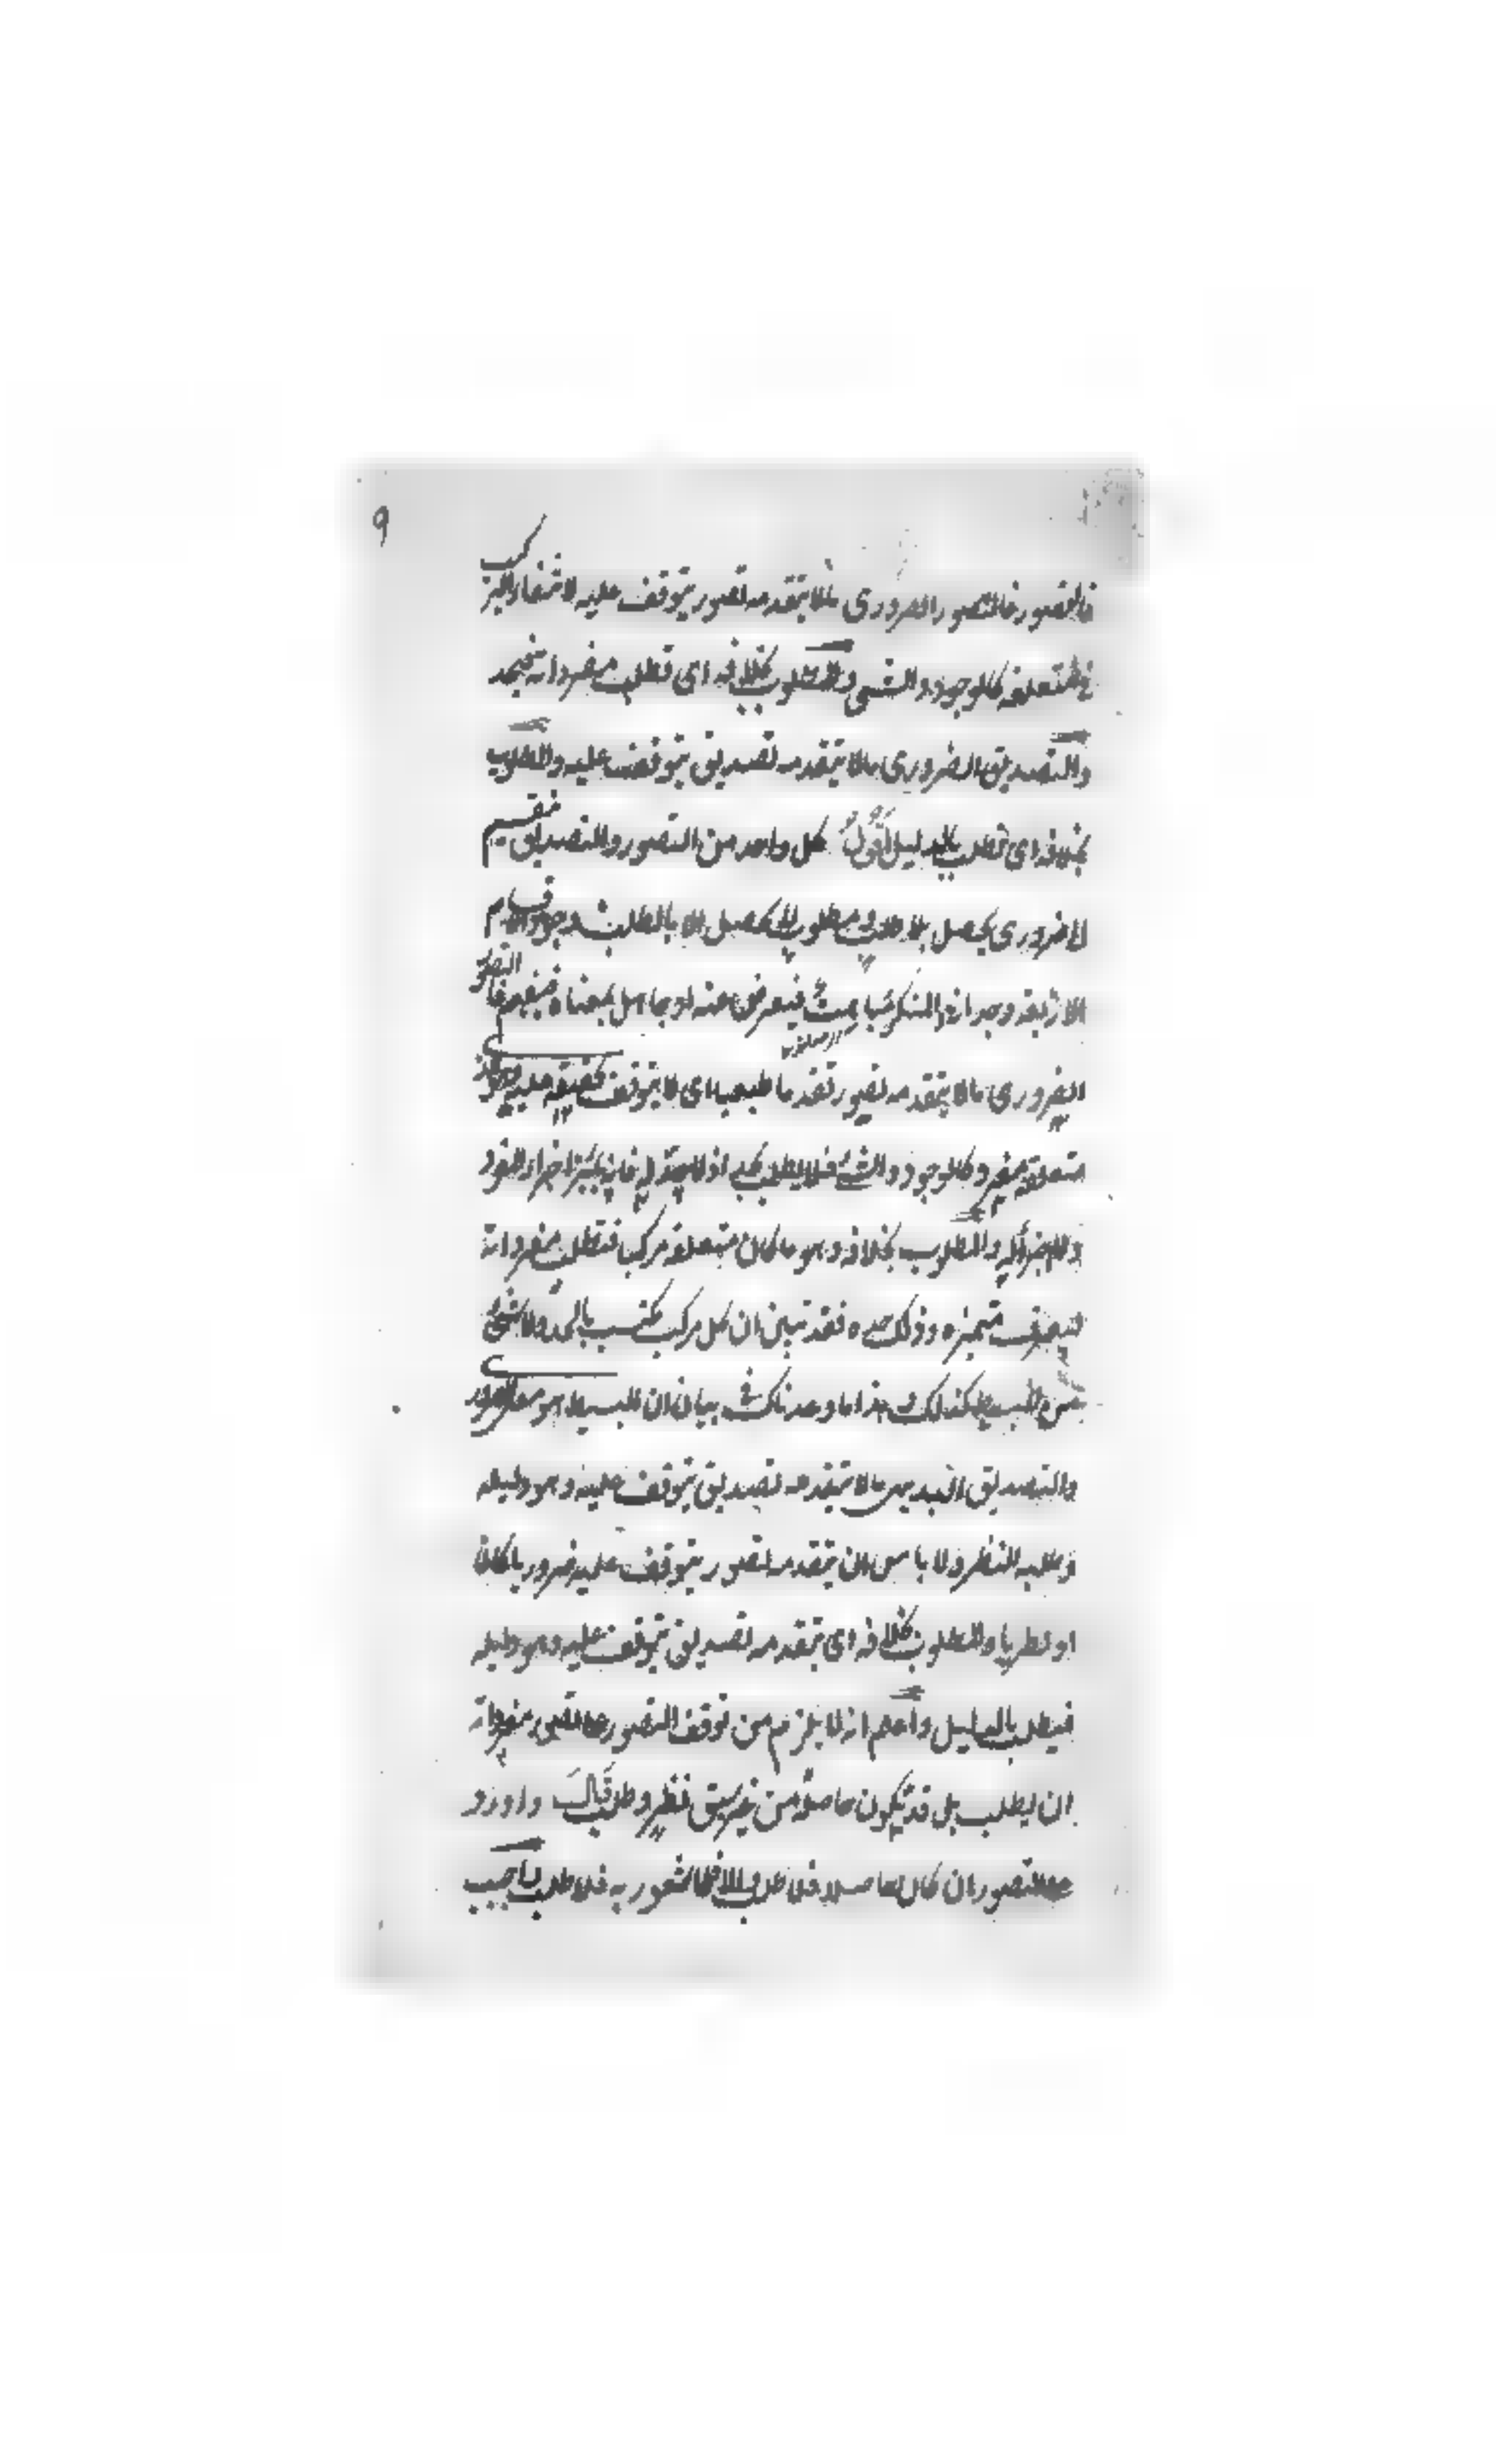 ٩
فالتصور فالتصور الضروري ما لا يتقدمه تصور يتوقف عليه لانتفاء التركيب
في متعلقه كالوجود والشيء والمطلوب بخلافه اي تطلب مفرداته فيحد
والتصديق الضروري ما لا يتقدمه تصديق يتوقف عليه والمطلوب
بخلافه اي تطلب بالدليل اقول كل واحد من التصور والتصديق ينقسم
الى ضروري يحصل بلا طلب ومطلوب لا يحصل الا بالطلب ووجود الاقسام
الاربعة وجداني والمنكر مباهت فيعرض عنه او جاهل بمعناه فيفهم فالتصور
الضروري ما لا يتقدمه تصور تقدما طبيعيا اي لا يتوقف تحققه عليه وهو الذي
متعلقه مفرد كالوجود والشيء فلا يطلب بحد اذ لا حد له فانه تمييز اجزاء المفرد
ولا جزء له والمطلوب بخلافه وهو ما كان متعلقه مركب فتطلب مفرداته
فيعرف متميزه وذلك حده فقد تبين ان كل مركب مكتسب بالحد ولا شيء
من البسيط كذلك وهذا ما وعدناك في بيان ان البسيط هو معنى الضروري
والتصديق البديهي ما لا يتقدمه تصديق يتوقف عليه وهو دليله
وطلبه النظر ولا باس ان يتقدمه تصور يتوقف عليه ضروريا كان
او نظريا والمطلوب بخلافه اي يتقدمه تصديق يتوقف عليه وهو دليله
فيطلب بالدليل واعلم انه لا يلزم من توقف التصور على تصور مفرداته
ان يطلب بل قد يكون حاصلا من غير سبق نظر وطلب قال واورد
على التصور ان كان حاصلا فلا طلب والا فلا شعور به فلا طلب واجيب